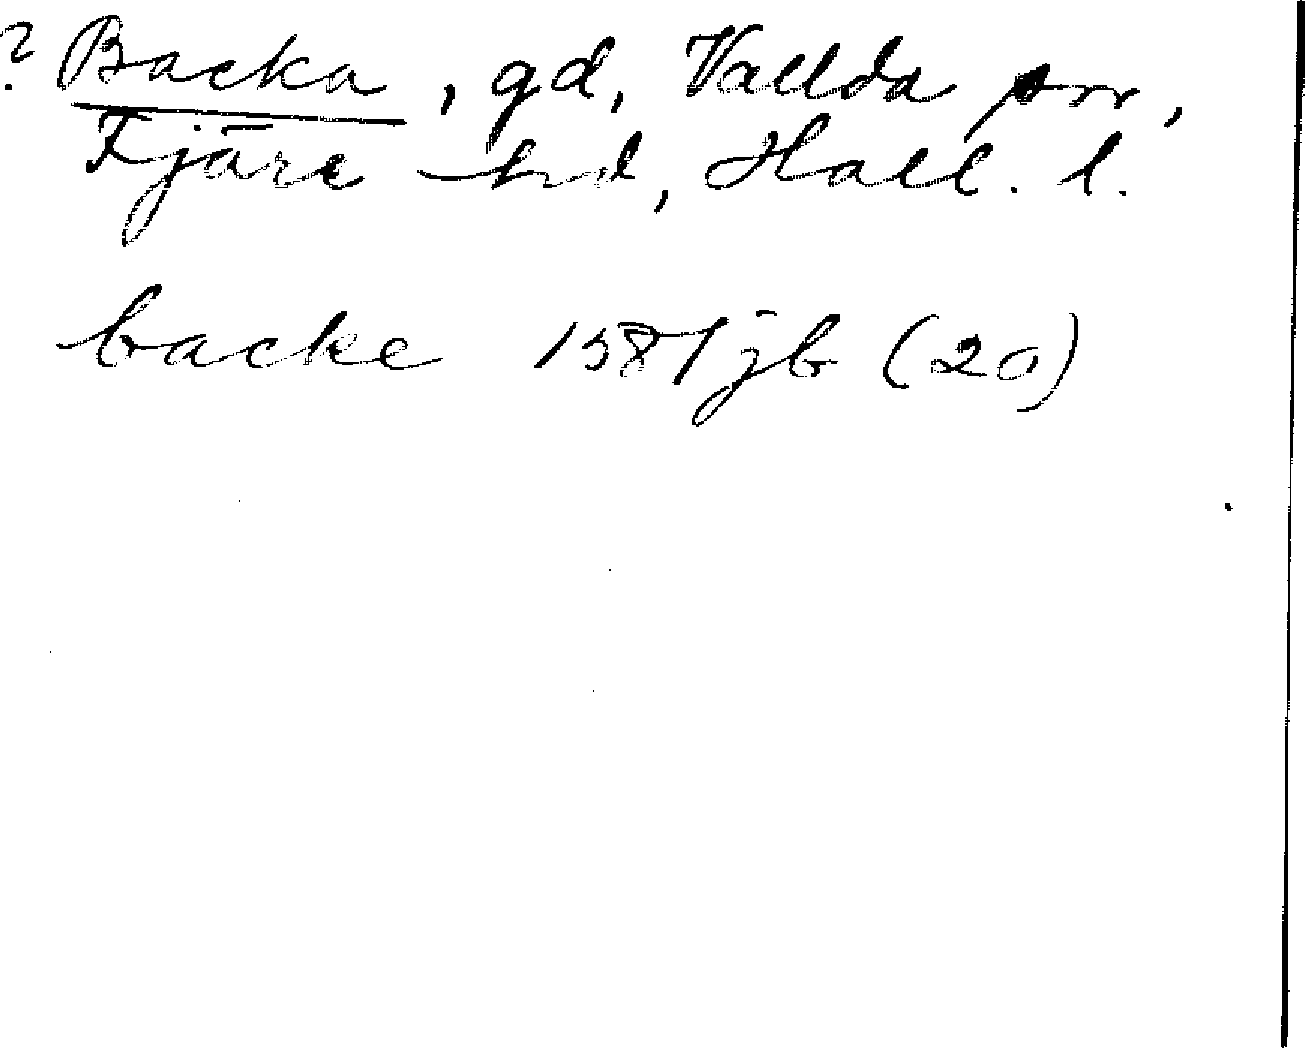 ? Backa, gd, Vallda sn,
Fjäre hd, Hall. l.
backe 1581 jb (20)